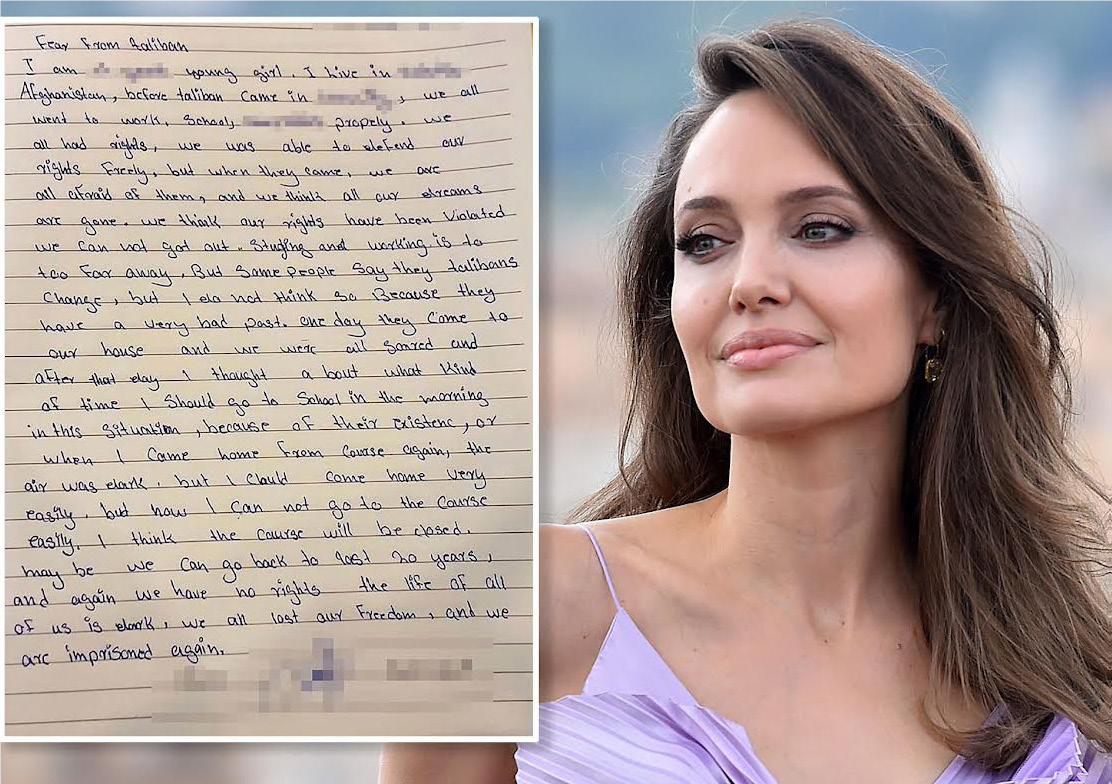 Fear from taliban
I am young girl. I Live in
Afghanistan, before taliban came in , we all
went to work, school, properly. we
all had rights, we was able to defend our
rights Freely, but when they came, we are
all afraid of them, and we think all our dreams
are gone. we think our rights have been violated
we can not got out. studing and working is to
too far away, But some people say they talibans
change, but I do not think so Because they
have a very bad past. one day they come to
our house and we were all scared and
after that day I thought a bout what kind
of time I should go to school in the morning
in this situation, because of their existenc, or
when I came home from course again, the
air was dark. but I clould come home very
easily. but now I can not go to the course
easily. I think the course will be closed.
may be we can go back to last 20 years,
and again we have no rights the life of all
of us is dark, we all lost our freedom, and we
are imprisoned again.